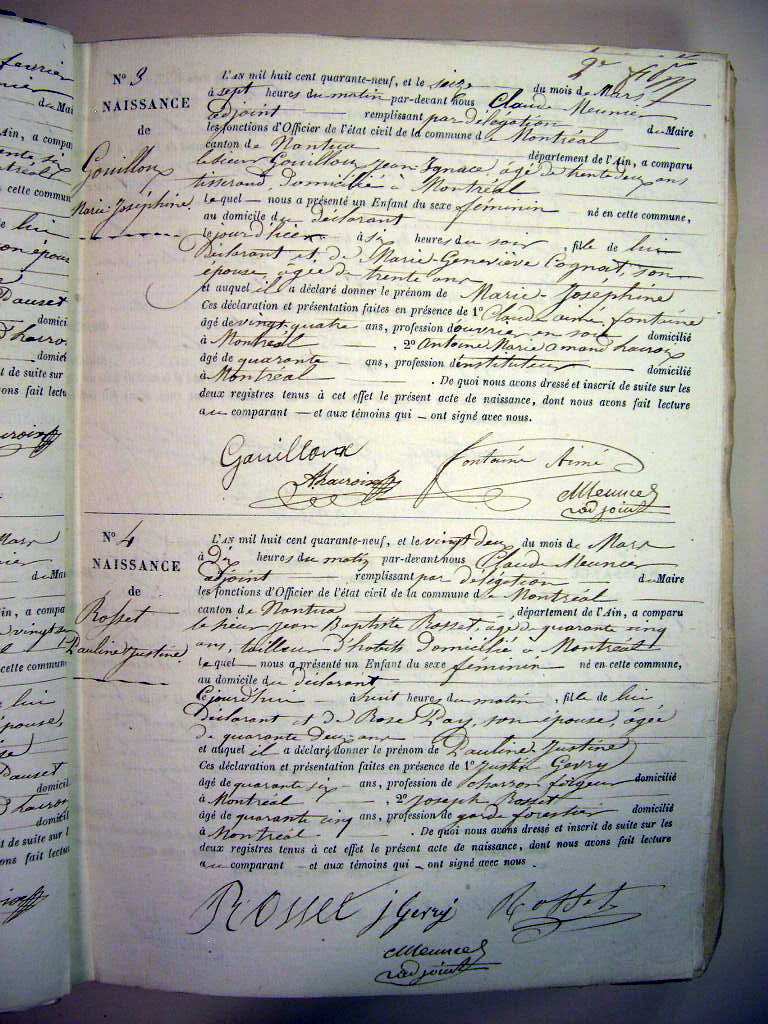 2e
No 3
NAISSANCE
de
Gouilloux
Marie-Joséphine.
L'AN mil huit cent quarante-neuf, et le seize du mois de Mars
à sept heures du matin par-devant nous Claude Meunier
adjoint remplissant par délégation du Maire
les fonctions d'Officier de l'état civil de la commune de Montréal
canton de Nantua département de l'Ain, a comparu
le sieur Gouilloux Jean-Ignace, âgé de trente deux ans
tisserand, domicilié à Montréal
lequel — nous a présenté un Enfant du sexe féminin — né en cette commune,
au domicile du déclarant
le jour d'hier à six heures du soir, fille de lui
Déclarant et de Marie-Geneviève Cognat, son
épouse, âgée de trente ans
et auquel il a déclaré donner le prénom de Marie-Joséphine
Ces déclaration et présentation faites en présence de 1° Claude Aimé fontaine
âgé de vingt-quatre ans, profession d'ouvrier en soie domicilié
à Montréal, 2° Antoine Marie amand
âgé de quarante — ans, profession d'instituteur domicilié
à Montréal. De quoi nous avons dressé et inscrit de suite sur les
deux registres tenus à cet effet le présent acte de naissance, dont nous avons fait lecture
au comparant — et aux témoins qui — ont signé avec nous.
Gouilloux
fontaine Aimé
Meunier
adjoint
No 4
NAISSANCE
de
Rosset
Pauline Justine.
L'AN mil huit cent quarante-neuf, et le vingt deux du mois de Mars
à Dix heures du matin par-devant nous Claude Meunier
adjoint remplissant par délégation du Maire
les fonctions d'Officier de l'état civil de la commune de Montréal
canton de Nantua département de l'Ain, a comparu
le sieur Jean Baptiste Rosset, âgé de quarante cinq
ans, tailleur d'habits domicilié à Montréal
lequel — nous a présenté un Enfant du sexe féminin né en cette commune,
au domicile du déclarant
Cejourd'hui à huit heures du matin, fille de lui
déclarant et de Rose Pay, son épouse, âgée
de quarante deux ans
et auquel il a déclaré donner le prénom de Pauline Justine
Ces déclaration et présentation faites en présence de 1° Justin Gevry
âgé de quarante six ans, profession de charron forgeur domicilié
à Montréal, 2° Joseph Rosset
âgé de quarante cinq ans, profession de garde forestier domicilié
à Montréal. De quoi nous avons dressé et inscrit de suite sur les
deux registres tenus à cet effet le présent acte de naissance, dont nous avons fait lecture
au comparant — et aux témoins qui — ont signé avec nous.
Rosset j Gevry Rosset
Meunier
adjoint